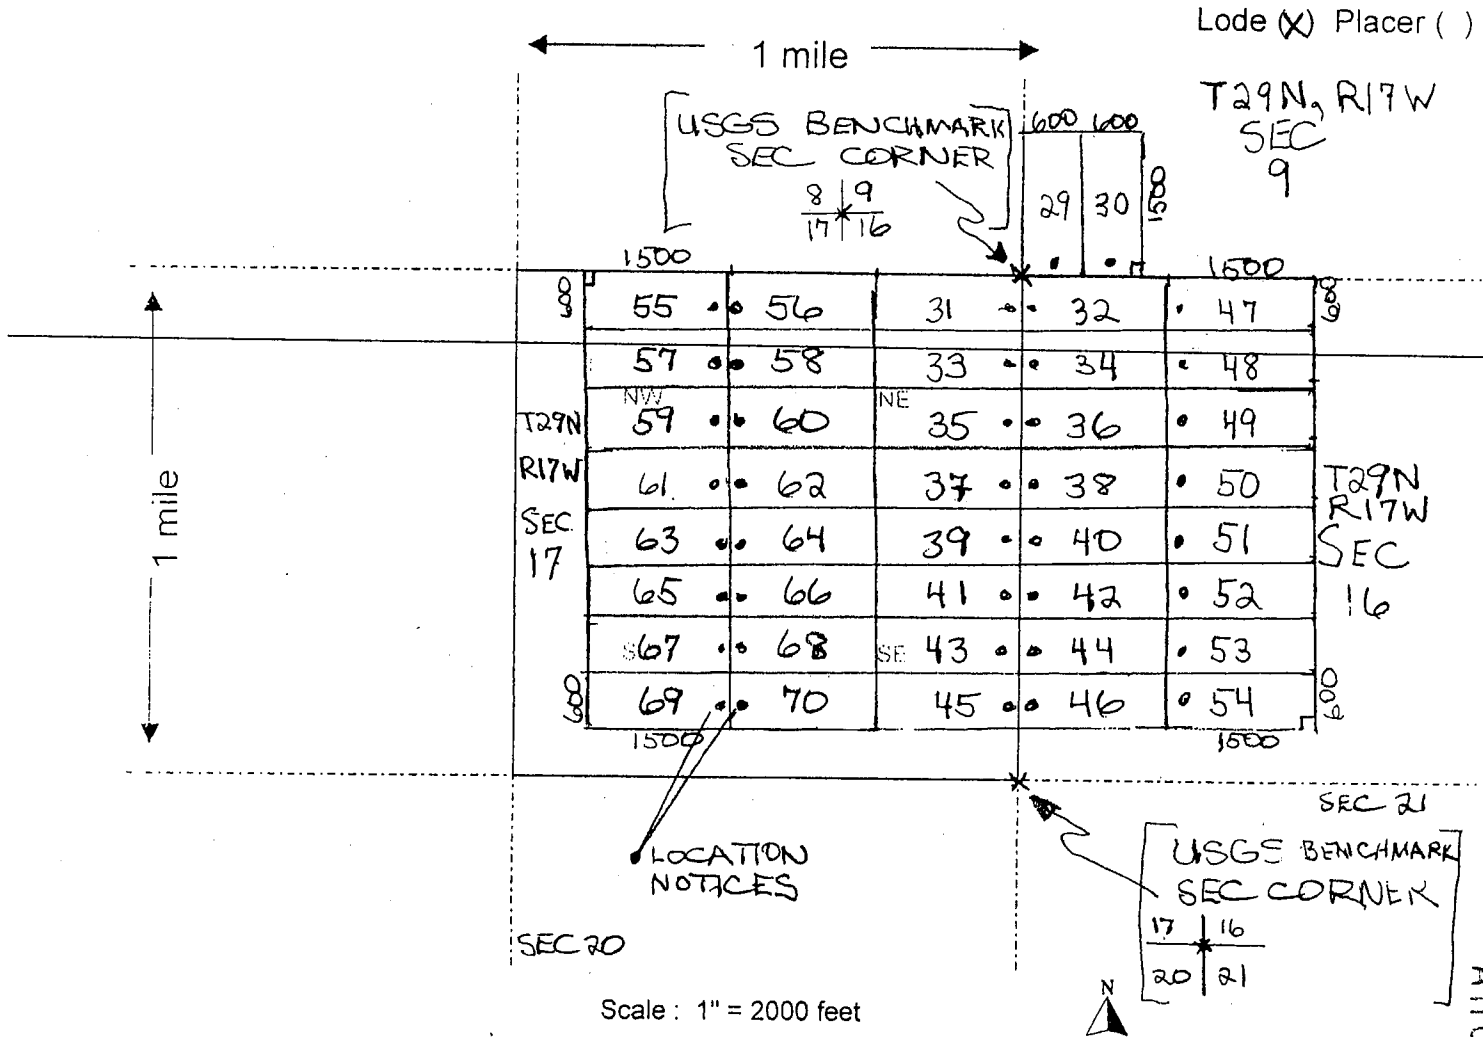 Lode (X) Placer ( )
1 mile
T29N, R17W
SEC
9
USGS BENCHMARK
SEC CORNER
8 9
17 16
600 600
29 30
1500
1500
1500
600
55 56 31 32 47
600
57 58 33 34 48
NW NE
59 60 35 36 49
61 62 37 38 50
63 64 39 40 51
65 66 41 42 52
S SE
67 68 43 44 53
69 70 45 46 54
600
600
1500
1500
T29N
R17W
SEC
17
1 mile
T29N
R17W
SEC
16
LOCATION
NOTICES
SEC 21
USGS BENCHMARK
SEC CORNER
17 16
20 21
SEC 20
N
Scale : 1" = 2000 feet